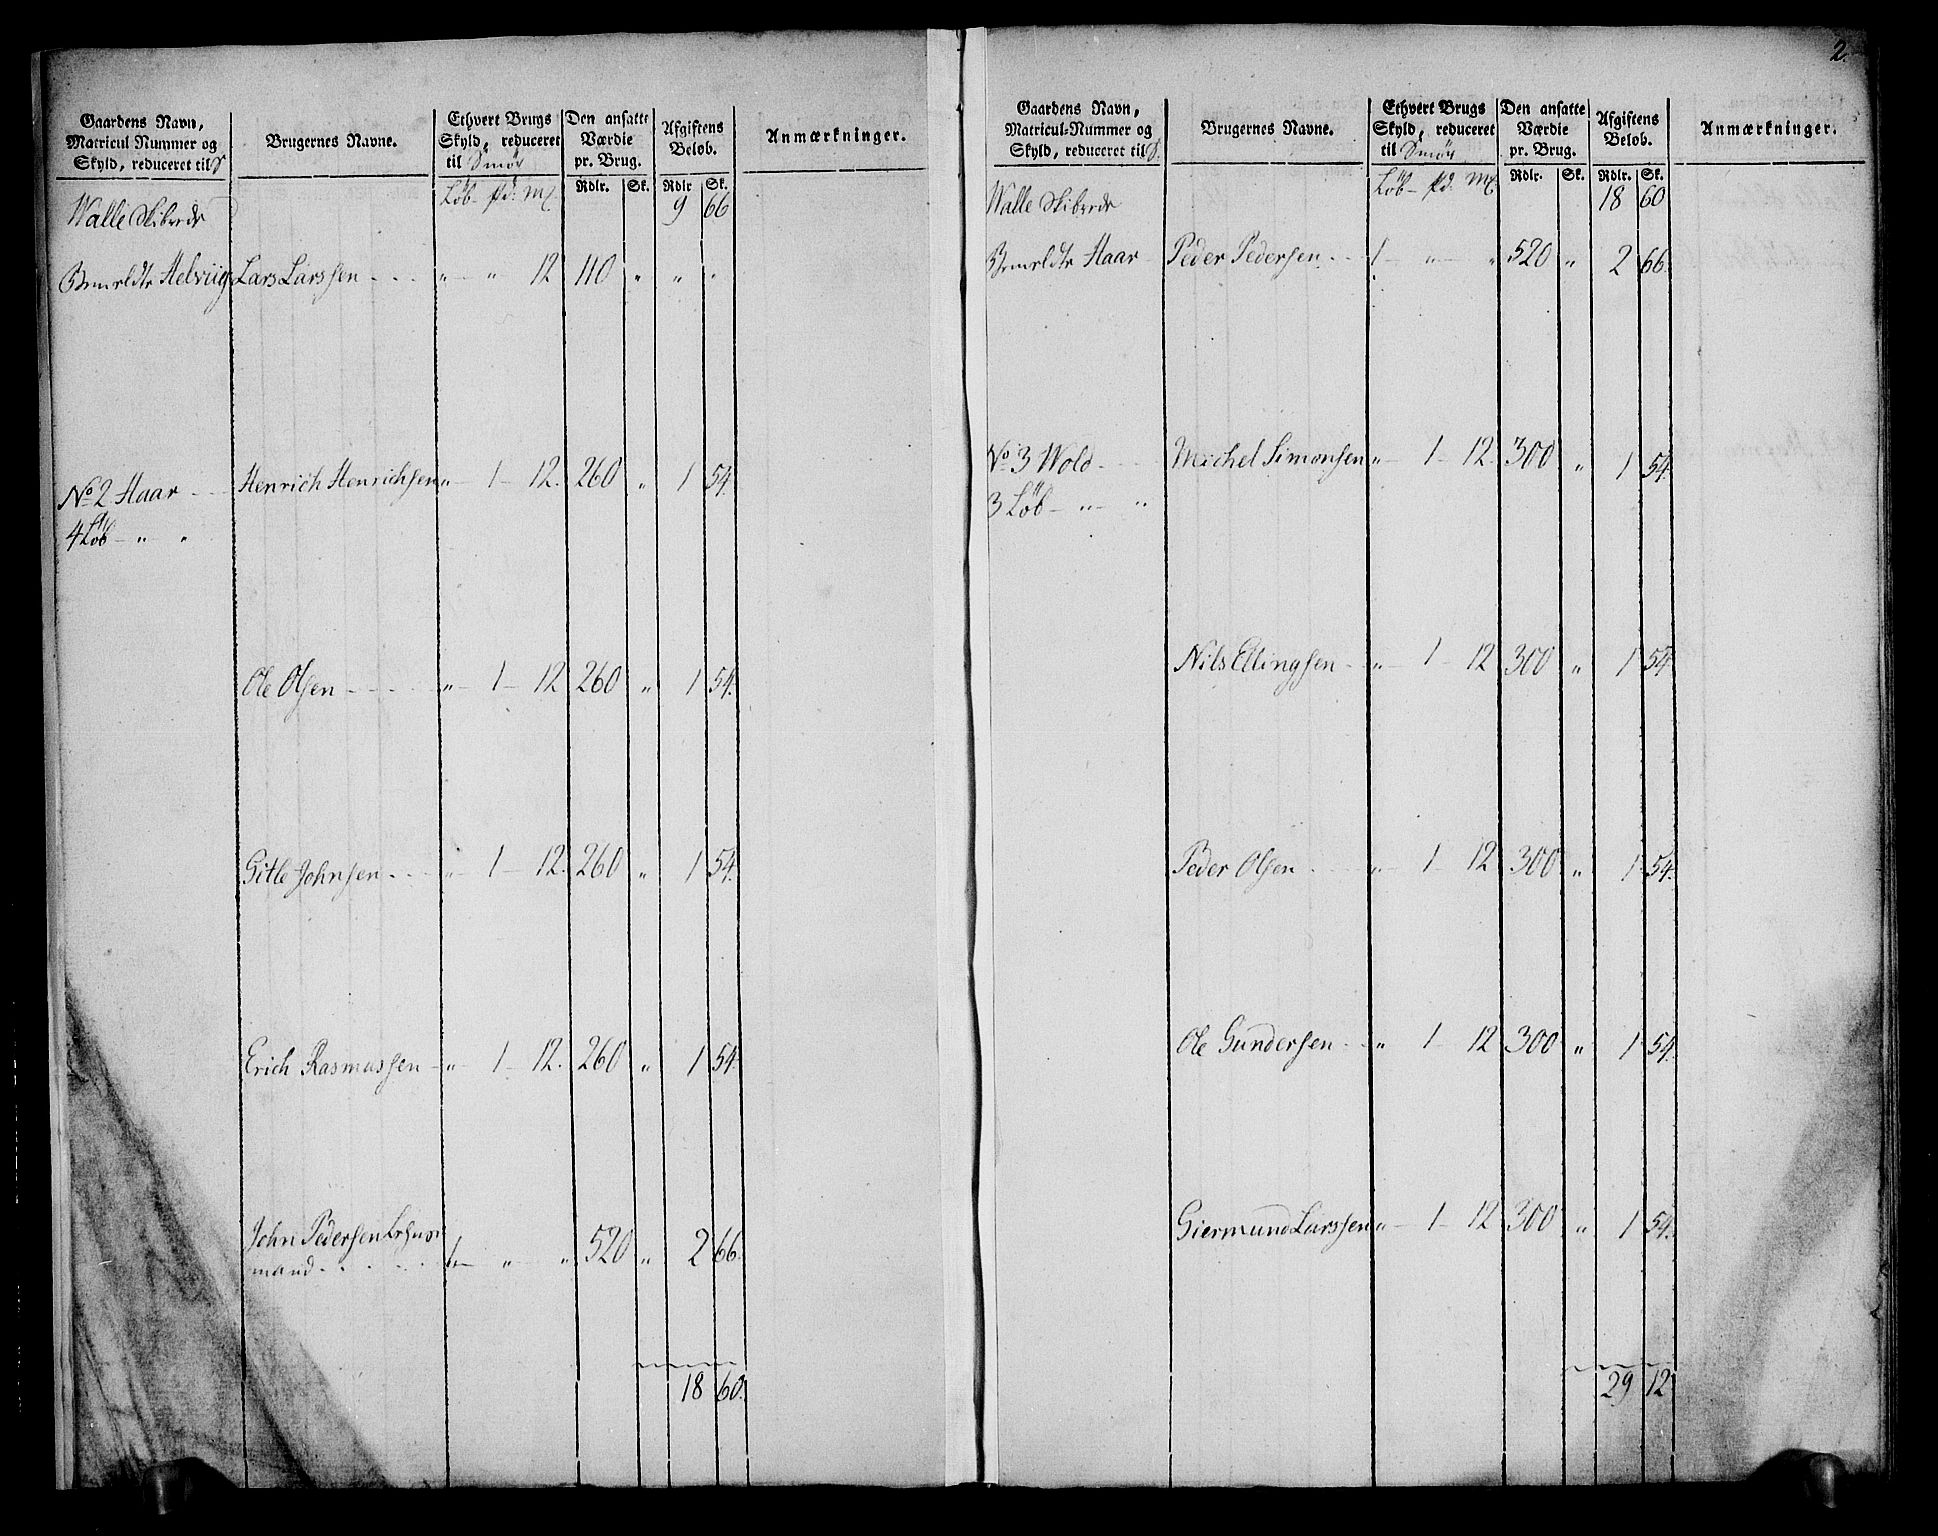 2.
Gaardens Navn,
Matricul Nummer og
Skyld, reduceret til S
Brugernes Navne.
Ethvert Brugs
Skyld, reduceret
til Smör
Den ansatte
Værdie
pr. Brug.
Afgiftens
Beløb.
Anmærkninger.
Löb – pd: Mk Rdlr. Sk. Rdlr Sk.
Walle Skibrede 9 66
Bemeldte Helviig Lars Larssen - - - " — " 12 110 " " "
No 2 Haar - - Henrich Henrichsen " — 1 — 12. 260 " 1 54.
4 Löb — " "
Ole Olsen - - - - - " — 1 — 12 260 " 1 54.
Gitle Johnsen - - - " — 1 — 12. 260 " 1 54.
Erich Rasmussen - " — 1 — 12. 260 " 1 54.
John Pedersen
mand - - - - - 1 — " " 520 " 2 66.
18 60.
Gaardens Navn,
Matricul-Nummer og
Skyld, reduceret til S.
Brugernes Navne.
Ethvert Brugs
Skyld, reduceret
til Smör
Den ansatte
Værdie
pr. Brug.
Afgiftens
Beløb.
Anmærkninger.
Löb – pd. Mk Rdlr. Sk. Rdlr. Sk.
Walle Skibrede 18 60
Bemeldte Haar Peder Pedersen - - 1 — " — " 520 " 2 66.
No 3 Wold - - - Michel Simonsen " — 1 — 12. 300 " 1 54.
3 Löb — " — "
Nils Ellingsen - - " — 1 — 12 300 " 1 54
Peder Olsen - - - - " — 1 — 12 300 " 1 54.
Ole Gundersen - - " 1 — 12 300 " 1 54.
Giermund Larssen " — 1 — 12 300 " 1 54.
29 12